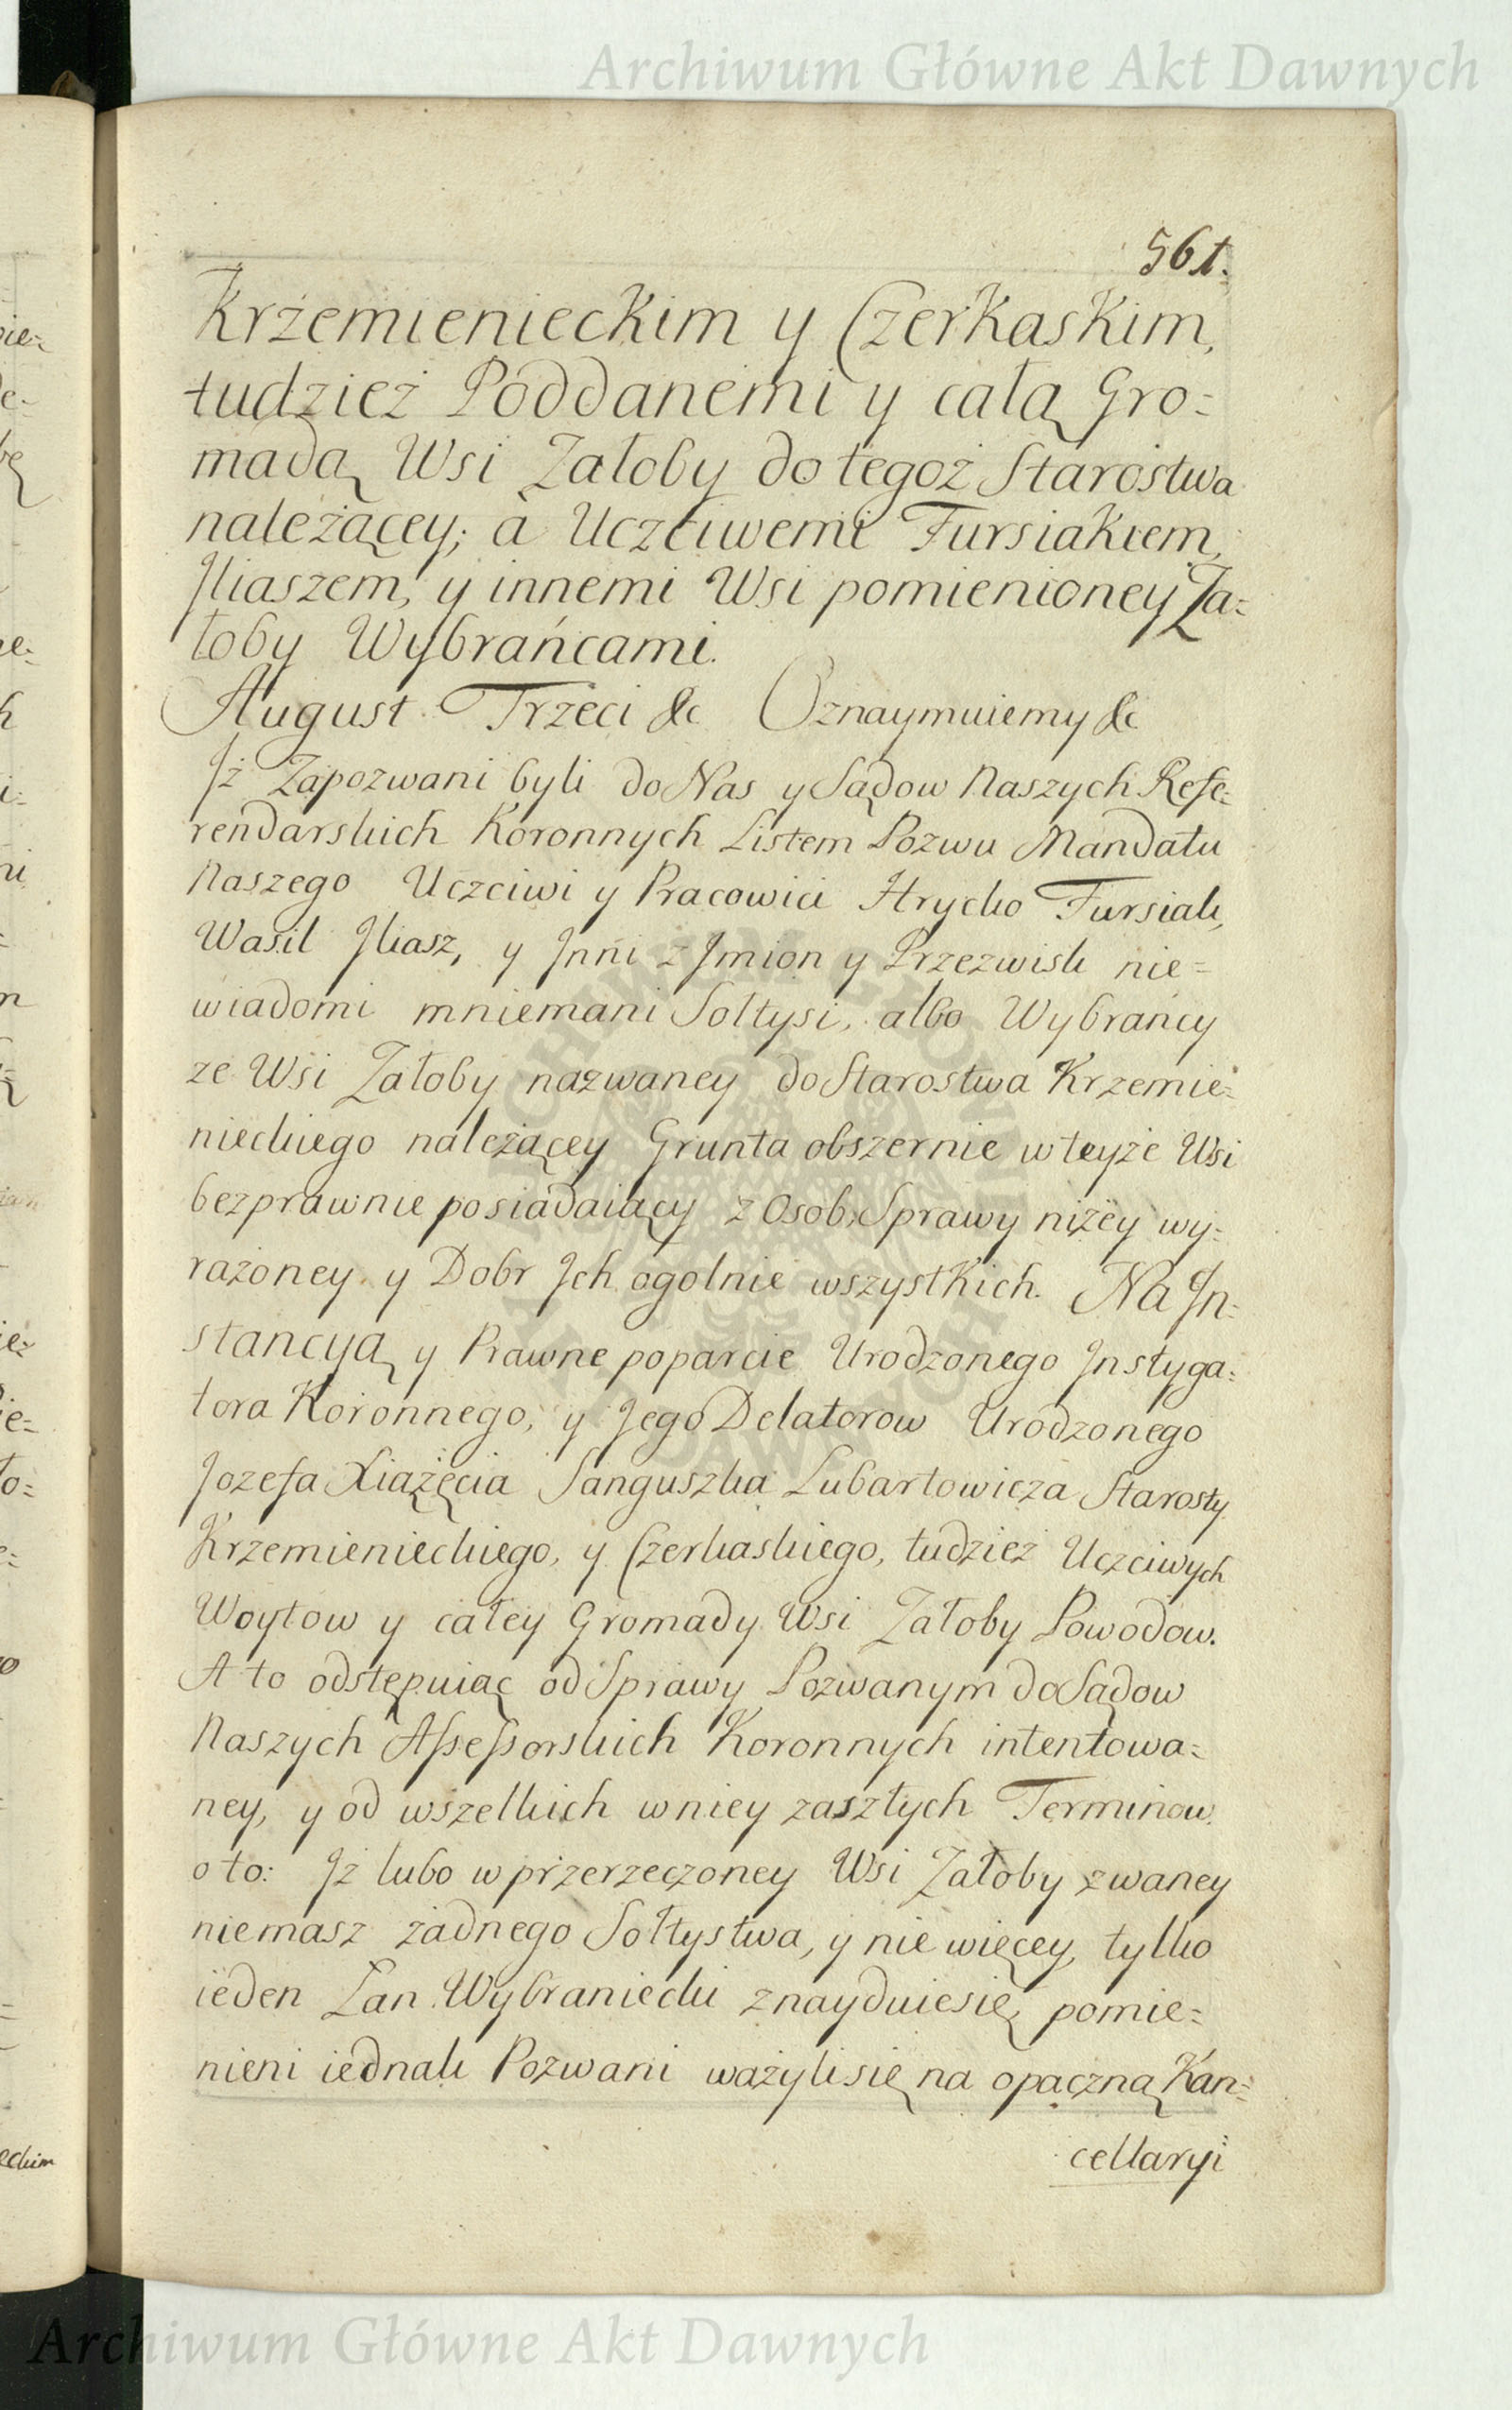 Archiwum Główne Akt Dawnych
561.
Krżemienieckim y Czerkaskim,
tudzież Poddanemi y całą Gro=
madą Wsi Załoby do tegoż Starostwa
należącey; a Uczciwemi Fursiakiem,
Jliaszem, y innemi Wsi pomienioney Za=
łoby Wybrańcami.
August Trzeci &c Oznaymuiemy &c
Jż Zapozwani byli do Nas y Sądow Naszych Refe=
rendarskich Koronnych Listem Pozwu Mandatu
Naszego Uczciwi y Pracowici Hrycko Fursiak,
Wasil Jliasz, y Jnni z Jmion y Przezwisk nie=
wiadomi mniemani Sołtysi, albo Wybrańcy
ze Wsi Załoby nazwaney do Starostwa Krzemie=
nieckiego należącey Grunta obszernie w teyże Wsi
bezprawnie posiadaiący z Osob, Sprawy niżey wy=
rażoney y Dobr Jch ogolnie wszystkich. Na Jn=
stancyą y Prawne poparcie Urodzonego Jnstyga=
tora Koronnego, y Jego Delatorow Urodzonego
Jozefa Xiążęcia Sanguszka Lubartowicza Starosty
Krzemienieckiego, y Czerkaskiego, tudzież Uczciwych
Woytow y całey Gromady Wsi Załoby Powodow.
A to odstępuiąc od Sprawy Pozwanym do Sądow
Naszych Assessorskich Koronnych intentowa=
ney, y od wszelkich w niey zaszłych Terminow.
o to: Jż lubo w przerzeczoney Wsi Załoby zwaney
niemasz żadnego Sołtystwa, y nie więcey, tylko
ieden Łan Wybraniecki znayduiesię, pomie=
nieni iednak Pozwani ważyli się na opaczną Kan=
cellaryi
Archiwum Główne Akt Dawnych